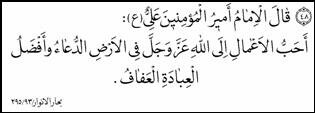 (٤٨) قالَ الْإِمَامُ أَمِيرُ الْمُؤْمِنِينَ عَلِيٌّ (ع):
أَحَبُّ الْأَعْمَالِ إِلَى اللهِ عَزَّ وَجَلَّ فِي الْأَرْضِ الدُّعَاءُ وَأَفْضَلُ
الْعِبَادَةِ الْعَفَافُ.
بحار الانوار ٢٩٥/٩٣